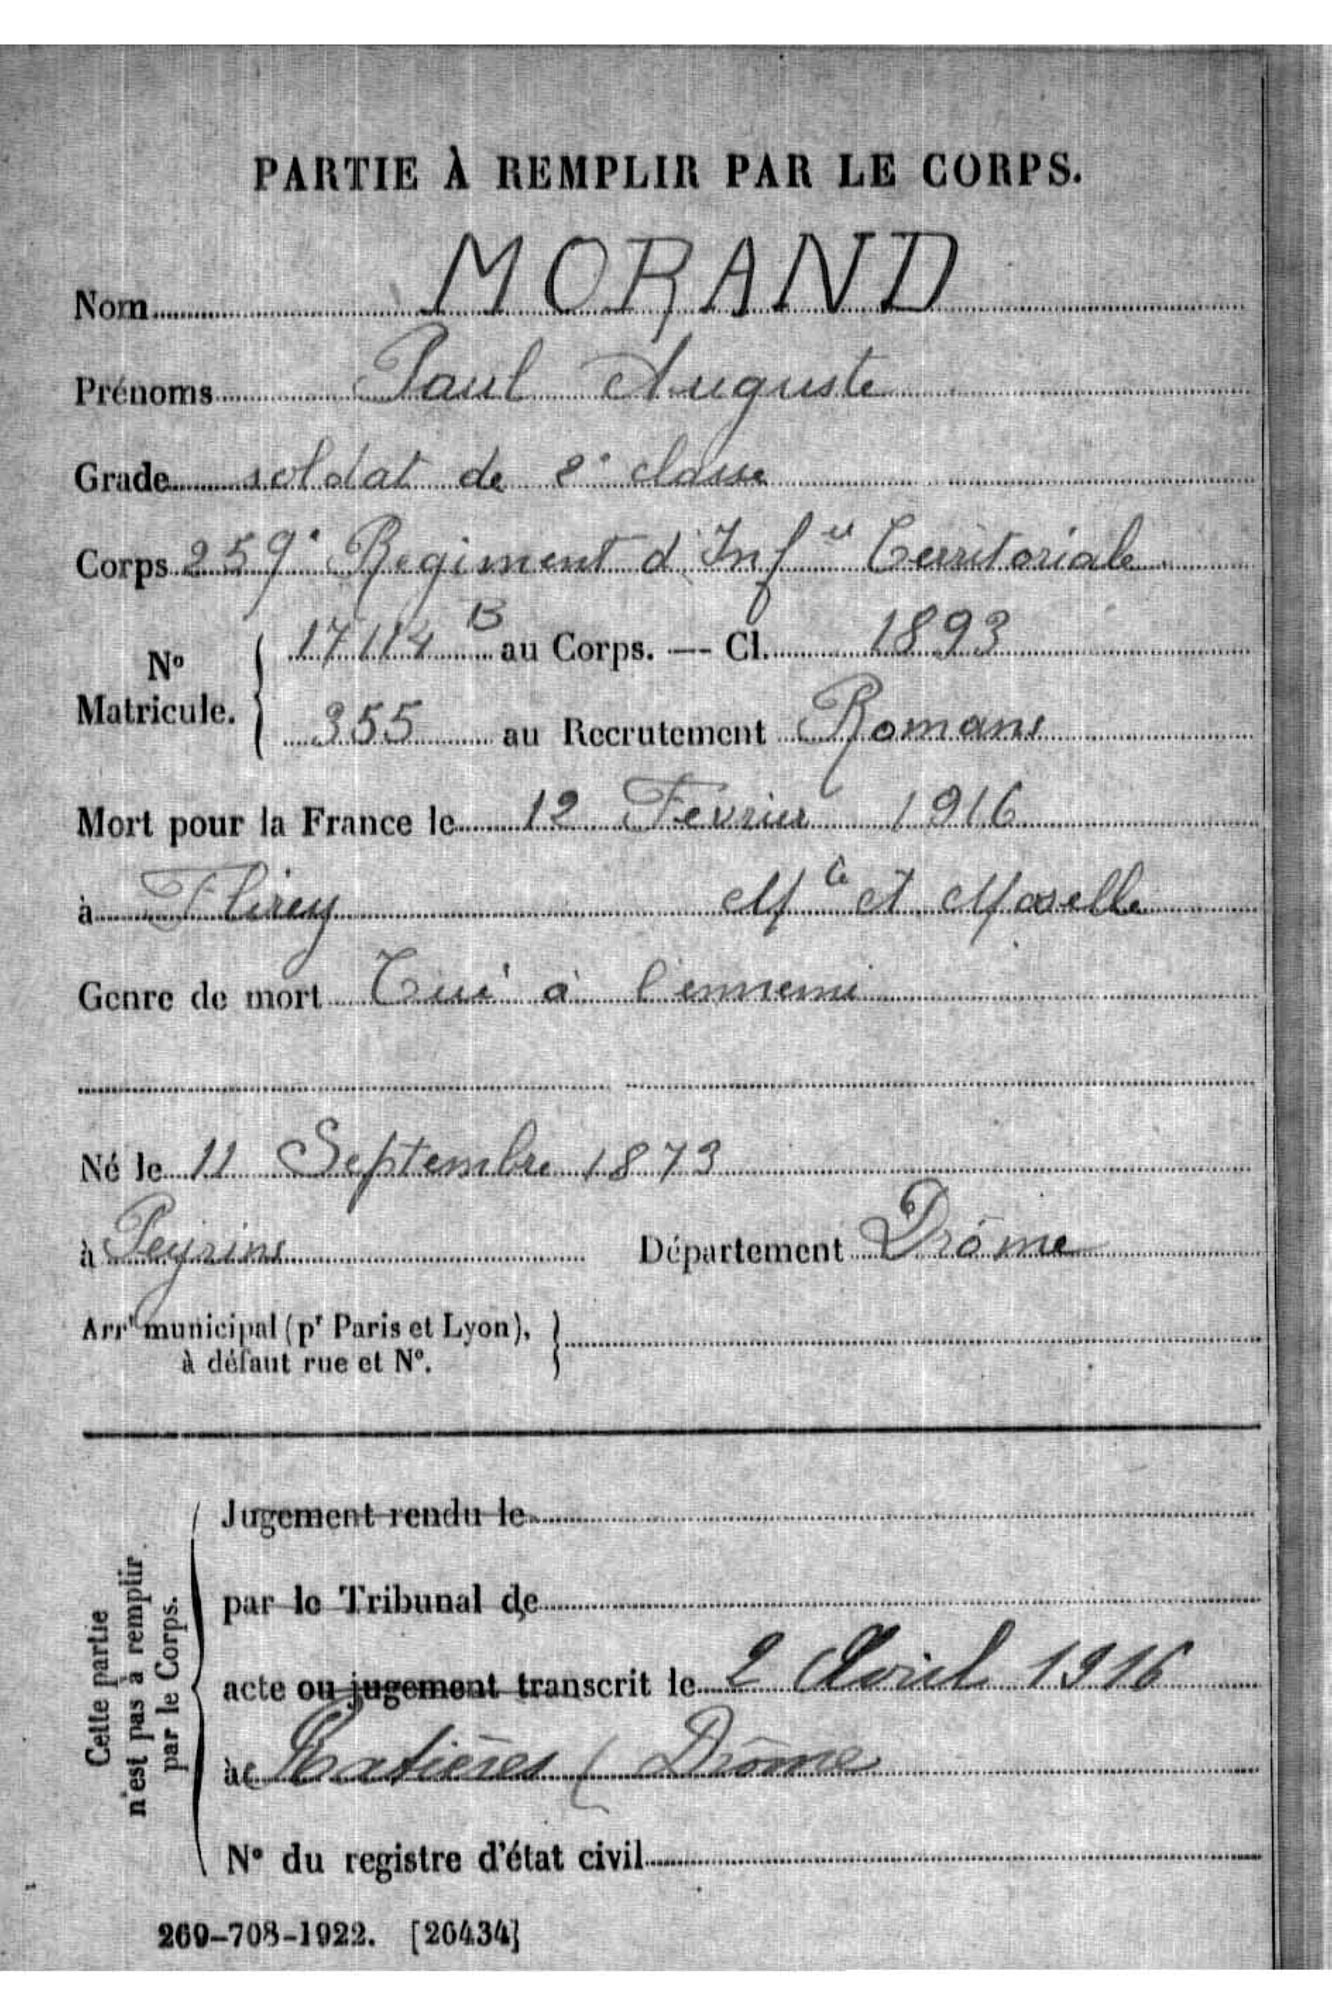 PARTIE À REMPLIR PAR LE CORPS.
Nom MORAND
Prénoms Paul Auguste
Grade soldat de 2e classe
Corps 259e Régiment d'Infie Territoriale
No Matricule. 17114 B au Corps. — Cl. 1893
355 au Recrutement Romans
Mort pour la France le 12 Février 1916
à Flirey Mthe et Moselle
Genre de mort Tué à l'ennemi
Né le 11 Septembre 1873
à Peyrins Département Drôme
Arrt municipal (pr Paris et Lyon),
à défaut rue et No.
Cette partie
n'est pas à remplir
par le Corps.
Jugement rendu le
par le Tribunal de
acte ou jugement transcrit le 2 Avril 1916
à Ratières (Drôme
No du registre d'état civil
269-708-1922. [26434]